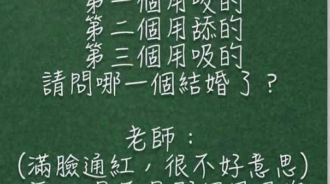 第一個用咬的
第二個用舔的
第三個用吸的
請問哪一個結婚了？
老師：
(滿臉通紅，很不好意思)